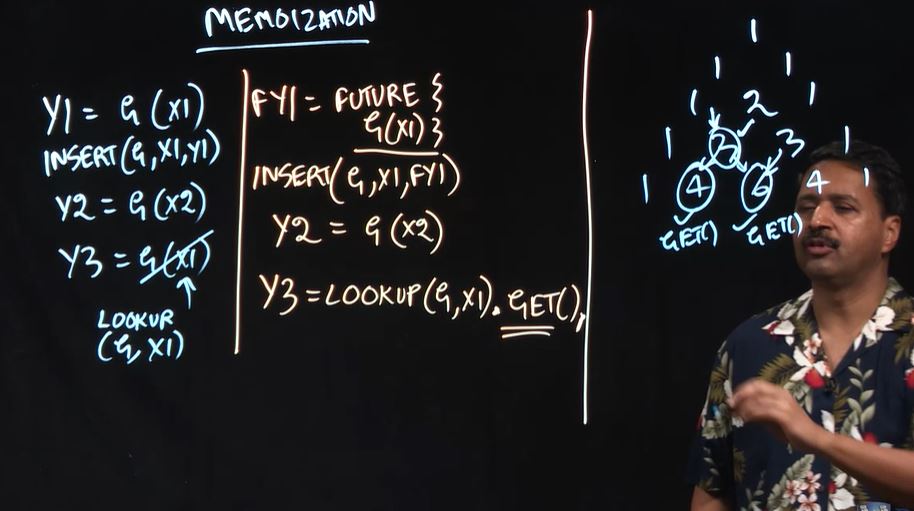 MEMOIZATION
Y1 = G(X1)
INSERT(G,X1,Y1)
Y2 = G(X2)
Y3 = G(X1)
LOOKUP
(G, X1)
FY1 = FUTURE {
G(X1) }
INSERT(G,X1,FY1)
Y2 = G(X2)
Y3 = LOOKUP(G,X1).GET();
1
1 1
1 2 1
1 3 3 1
1 4 6 4 1
GET() GET()